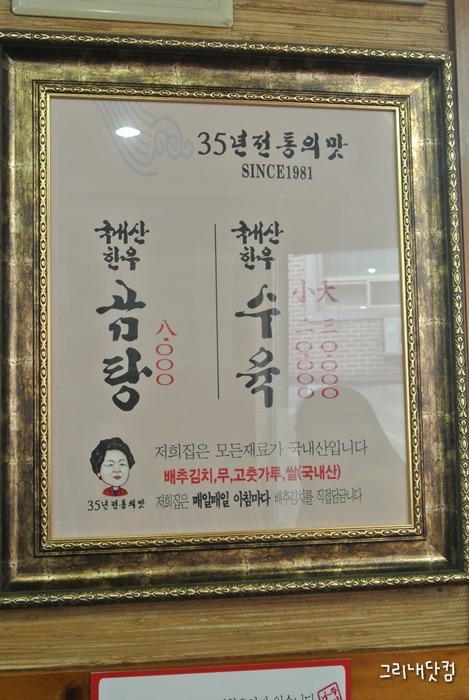 35년전통의맛
SINCE1981
국내산
한우
곰탕
八,○○○
국내산
한우
수육
小 二○,○○○
大 三○,○○○
저희집은 모든재료가 국내산입니다
배추김치,무,고춧가루,쌀(국내산)
저희집은 매일매일 아침마다 배추김치를 직접담금니다
35년전통의맛
그리내닷컴